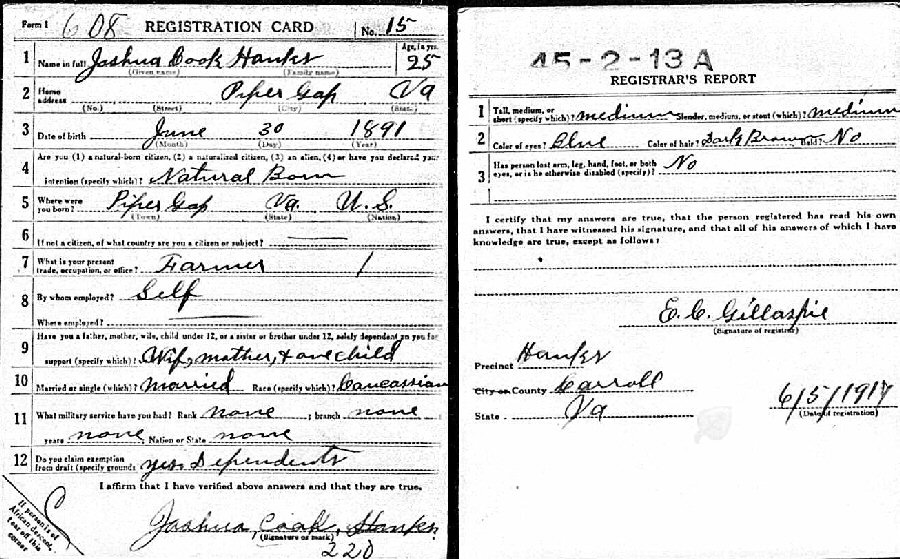 Form 1 608 REGISTRATION CARD No. 15
1 Name in full Joshua Cook Hanks Age, in yrs. 25
(Given name) (Family name)
2 Home address Piper Gap Va
(No.) (Street) (City) (State)
3 Date of birth June 30 1891
(Month) (Day) (Year)
4 Are you (1) a natural-born citizen, (2) a naturalized citizen, (3) an alien, (4) or have you declared your
intention (specify which)? Natural Born
5 Where were you born? Piper Gap Va. U.S.
(Town) (State) (Nation)
6 If not a citizen, of what country are you a citizen or subject?
7 What is your present trade, occupation, or office? Farmer 1
8 By whom employed? Self
Where employed?
9 Have you a father, mother, wife, child under 12, or a sister or brother under 12, solely dependent on you for
support (specify which)? Wif, mother, + one child
10 Married or single (which)? married Race (specify which)? Caucassian
11 What military service have you had? Rank none ; branch none
years none Nation or State none
12 Do you claim exemption from draft (specify grounds) yes Dependents
I affirm that I have verified above answers and that they are true.
If person is of African descent, tear off this corner
Joshua Cook Hanks
(Signature or mark)
220
45-2-13 A
REGISTRAR'S REPORT
1 Tall, medium, or short (specify which)? medium Slender, medium, or stout (which)? medium
2 Color of eyes? Blue Color of hair? Dark Brown Bald? No
3 Has person lost arm, leg, hand, foot, or both eyes, or is he otherwise disabled (specify)? No
I certify that my answers are true, that the person registered has read his own
answers, that I have witnessed his signature, and that all of his answers of which I have
knowledge are true, except as follows:
E. C. Gillaspie
(Signature of registrar)
Precinct Hanks
City or County Carroll
State Va
6/5/1917
(Date of registration)